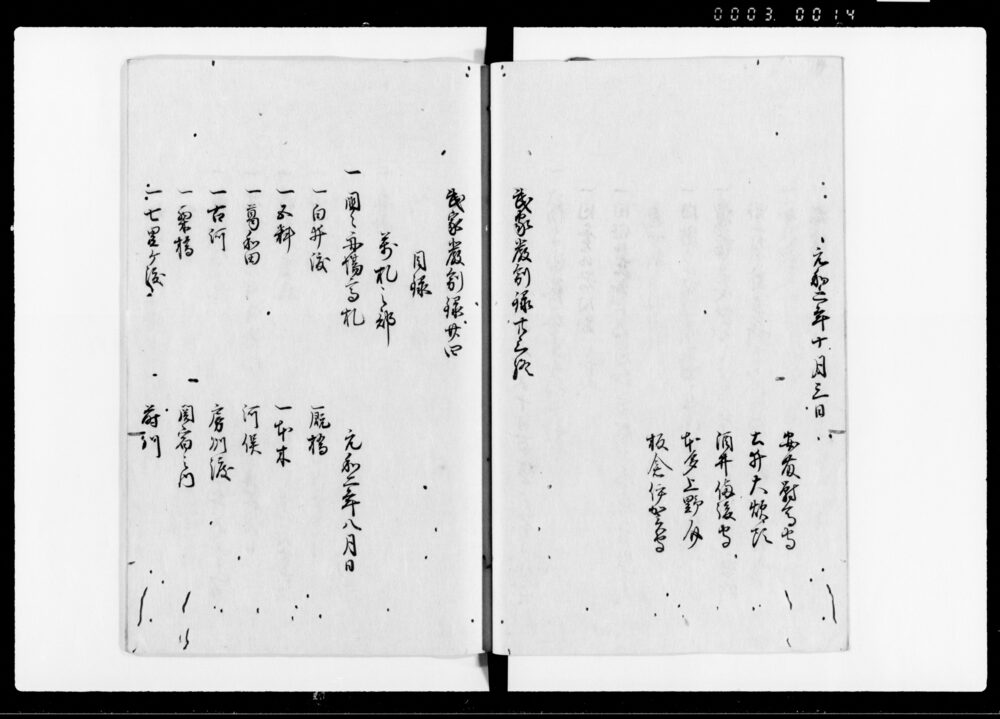 0003 0014
元和二年十月三日
安藤対馬守
土井大炊頭
酒井備後守
本多上野介
板倉伊賀守
武家厳制録廿三終
武家厳制録廿四
目録
高札之部
一 関東船場高札 元和二年八月日
一 白井渡 一 厩橋
一 五料 一 本木
一 葛和田 河俣
一 古河 房川渡
一 栗橋 関宿之内
一 七里ヶ渡